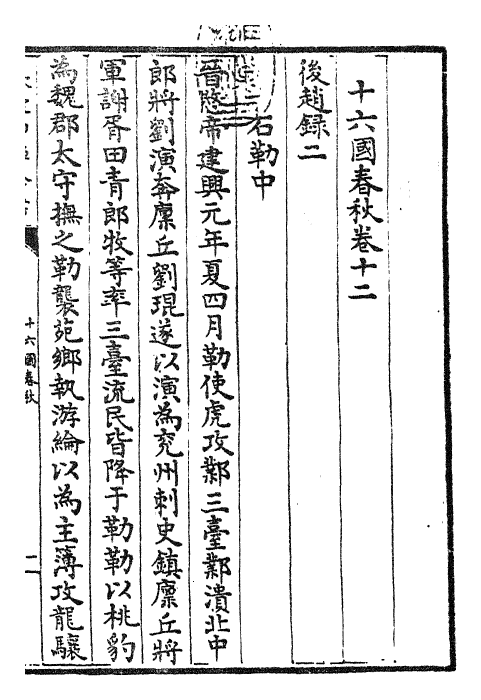 十六國春秋卷十二
後趙録二
石勒中
晉愍帝建興元年夏四月勒使虎攻鄴三臺鄴潰北中
郎將劉演奔廩丘劉琨遂以演為兖州刺史鎮廩丘將
軍謝胥田青郎牧等率三臺流民皆降于勒勒以桃豹
為魏郡太守撫之勒襲苑鄉執游綸以為主簿攻龍驤
十六國春秋